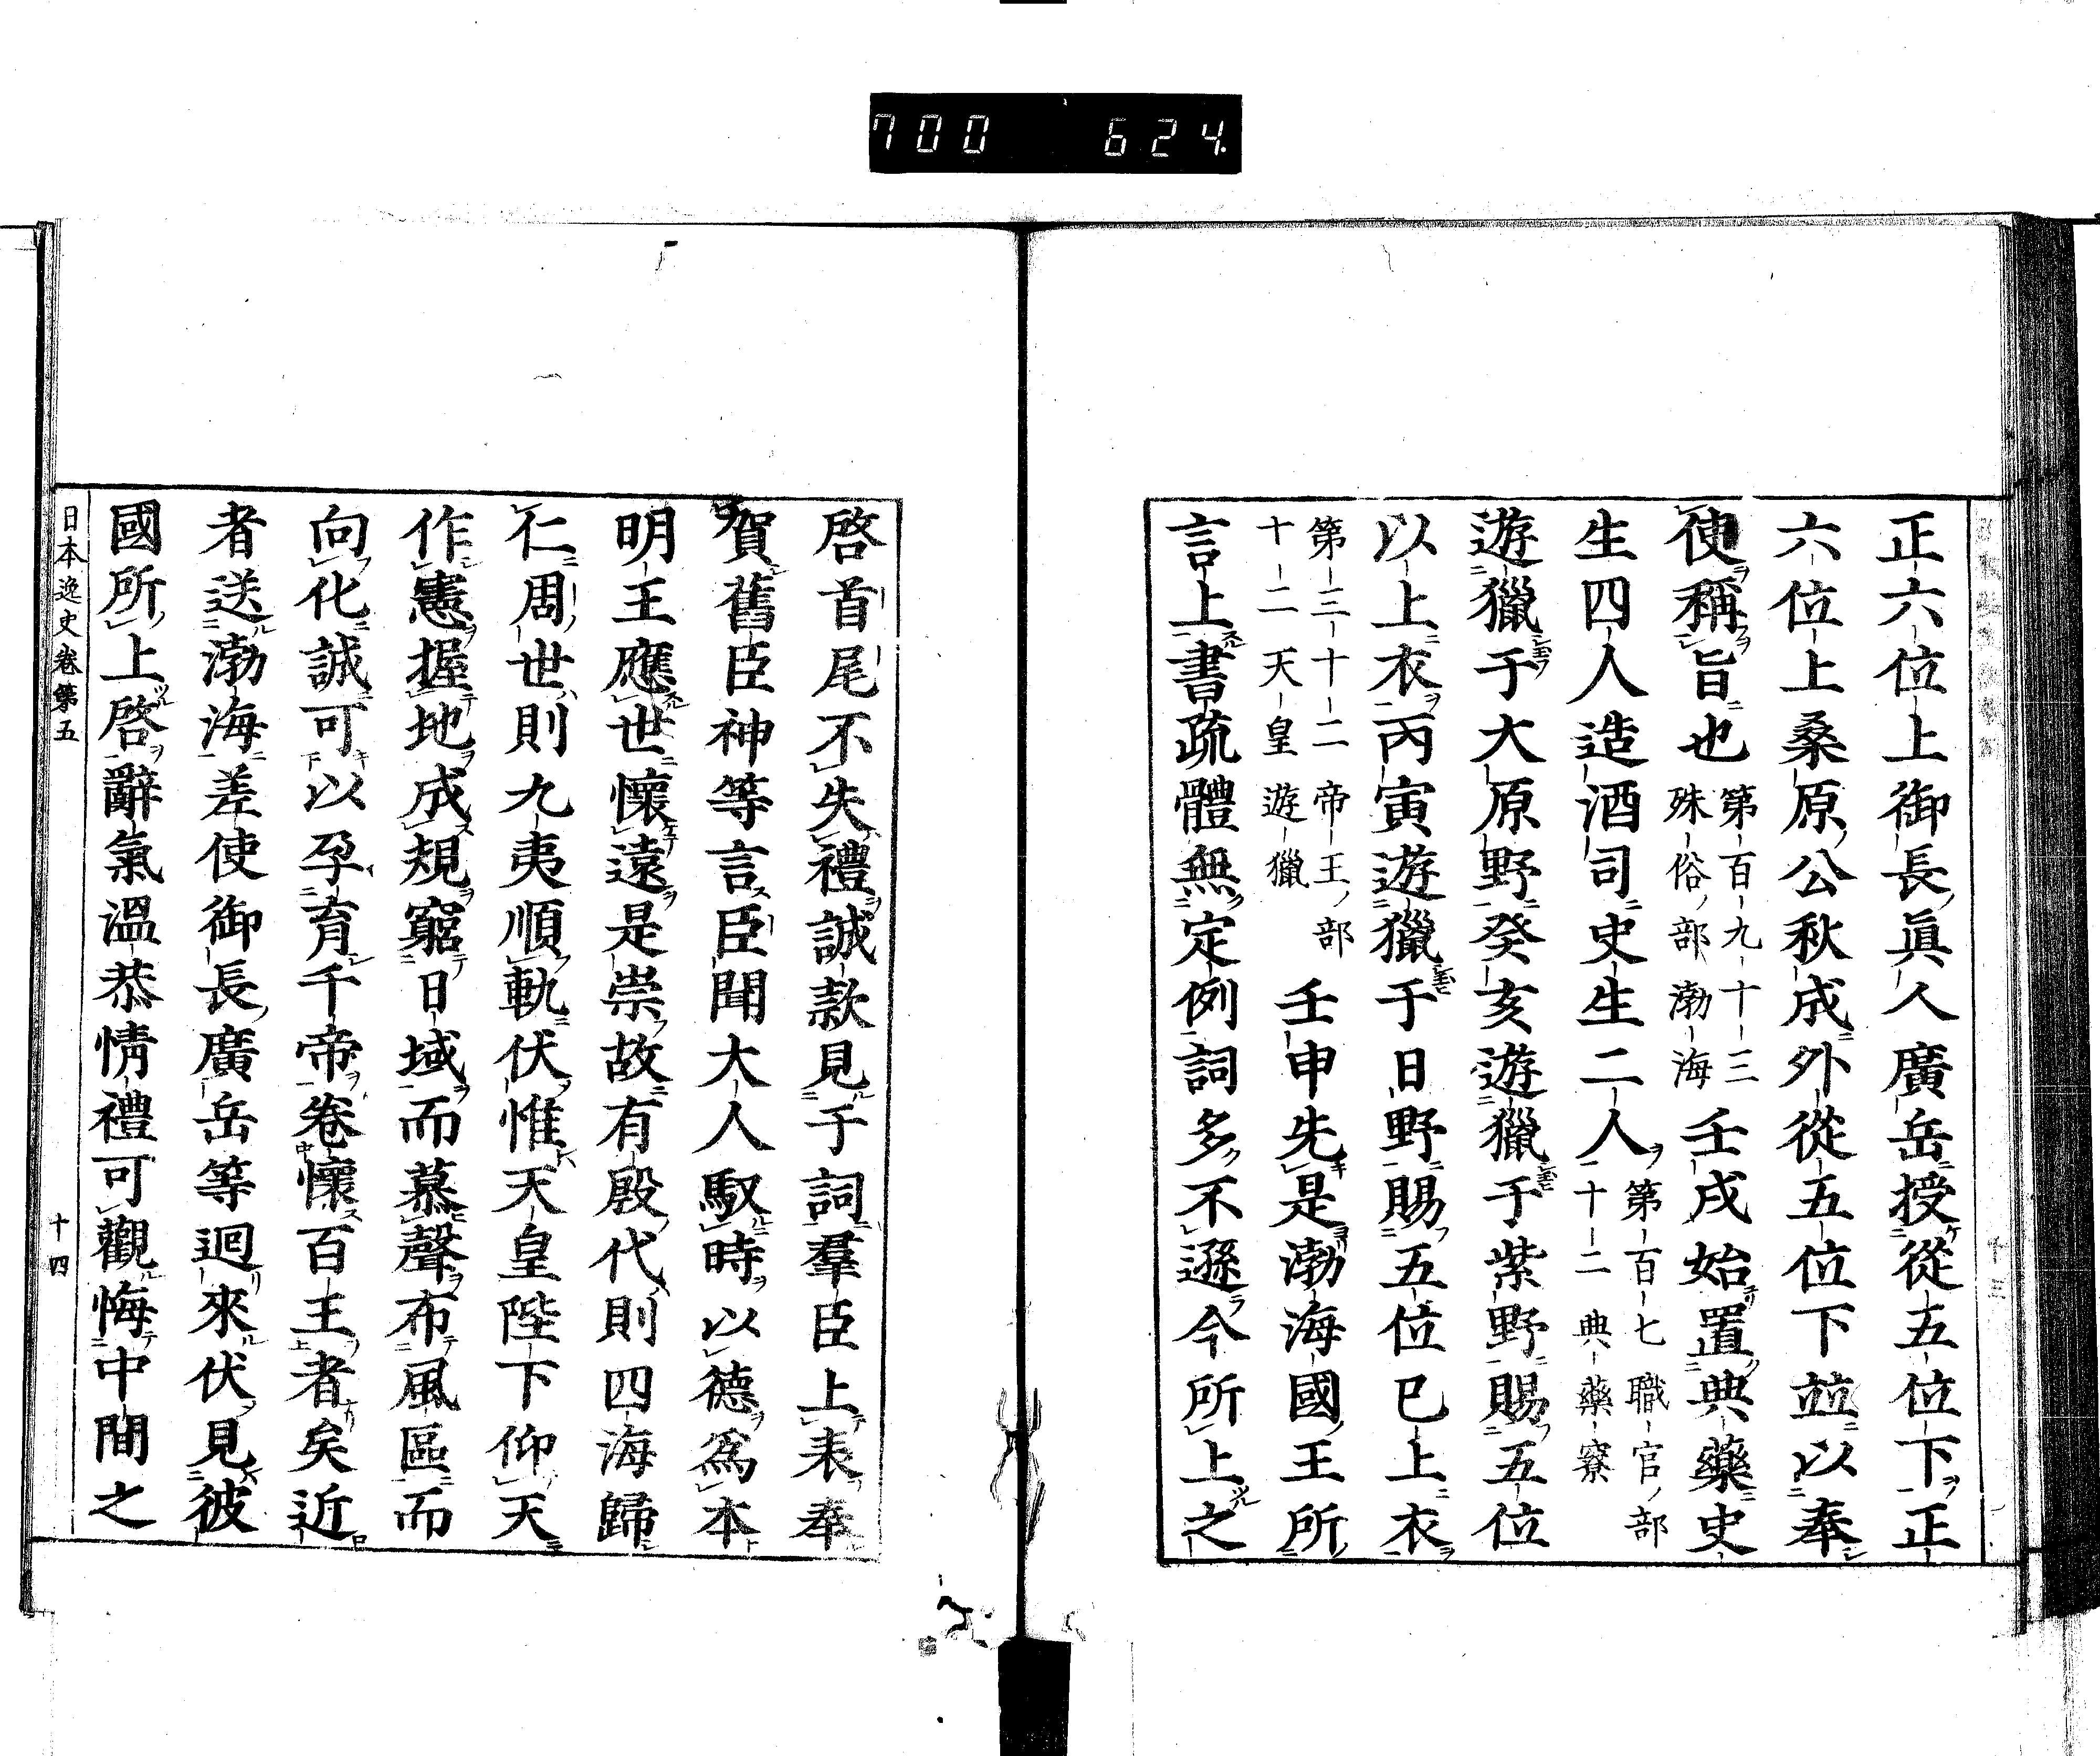 700 624
正六位上御長眞人廣岳授從五位下正
六位上桑原公秋成外從五位下並以奉
使稱旨也第百九十三殊俗部渤海壬戌始置典藥史
生四人造酒司史生二人第百七職官部十二典藥寮
遊獵于大原野癸亥遊獵于紫野賜五位
以上衣丙寅遊獵于日野賜五位已上衣
第三十二帝王部十二天皇遊獵壬申先是渤海國王所
言上書疏體無定例詞多不遜今所上之
啓首尾不失禮誠款見于詞羣臣上表奉
賀舊臣神等言臣聞大人馭時以德爲本
明王應世懷遠是崇故有殷代則四海歸
仁周世則九夷順軌伏惟天皇陛下仰天
作憲握地成規窮日域而慕聲布風區而
向化誠可以孕育千帝卷懷百王者矣近
者送渤海差使御長廣岳等迴來伏見彼
國所上啓辭氣溫恭情禮可觀悔中間之
日本逸史卷第五 十四